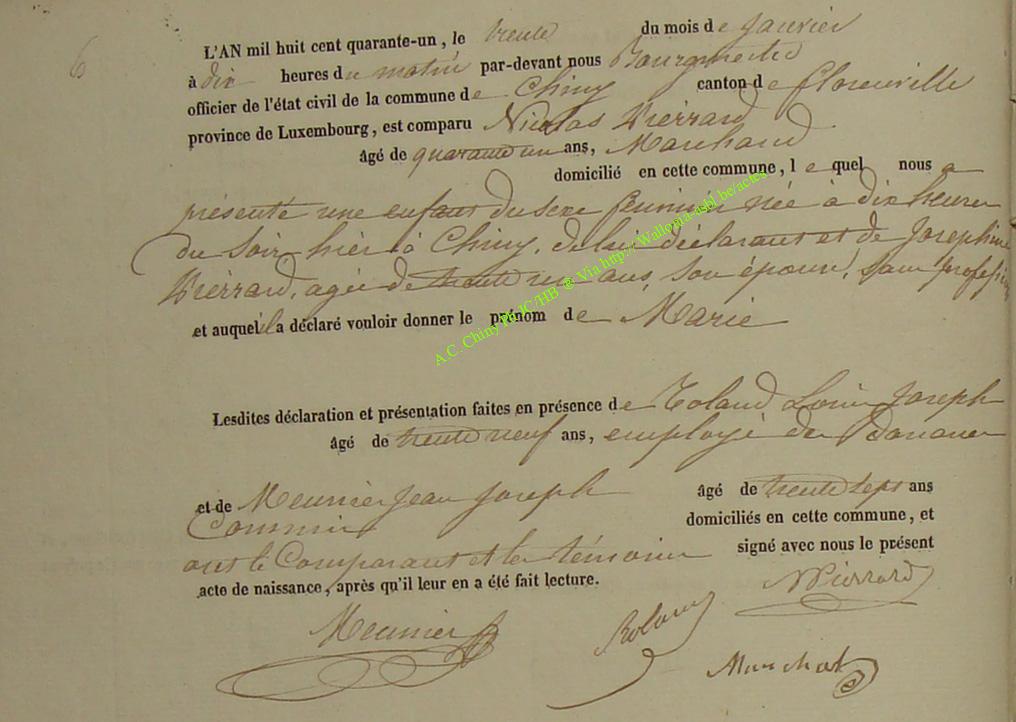 6
L'AN mil huit cent quarante-un, le trente du mois de Janvier
à dix heures du matin par-devant nous Bourgmestre
officier de l'état civil de la commune de Chiny canton de Florenville
province de Luxembourg, est comparu Nicolas Pierrard
âgé de quarante un ans, Marchand
domicilié en cette commune, lequel nous a
présenté une enfant du sexe féminin née à dix heures
du soir hier à Chiny, de lui déclarant et de Josephine
Pierrard, agée de trente un ans, son épouse, sans profession
et auquel il a déclaré vouloir donner le prénom de Marie
Lesdites déclaration et présentation faites en présence de Roland Louis Joseph
âgé de trente neuf ans, employé des douanes
et de Meunier Jean Joseph âgé de trente sept ans
Commis domiciliés en cette commune, et
ont le Comparant et les témoins signé avec nous le présent
acte de naissance, après qu'il leur en a été fait lecture.
NPierrard
Meunier Roland
Marchot
A.C. Chiny Ph JC/HB @ Via http://Wallonia-asbl.be/actes